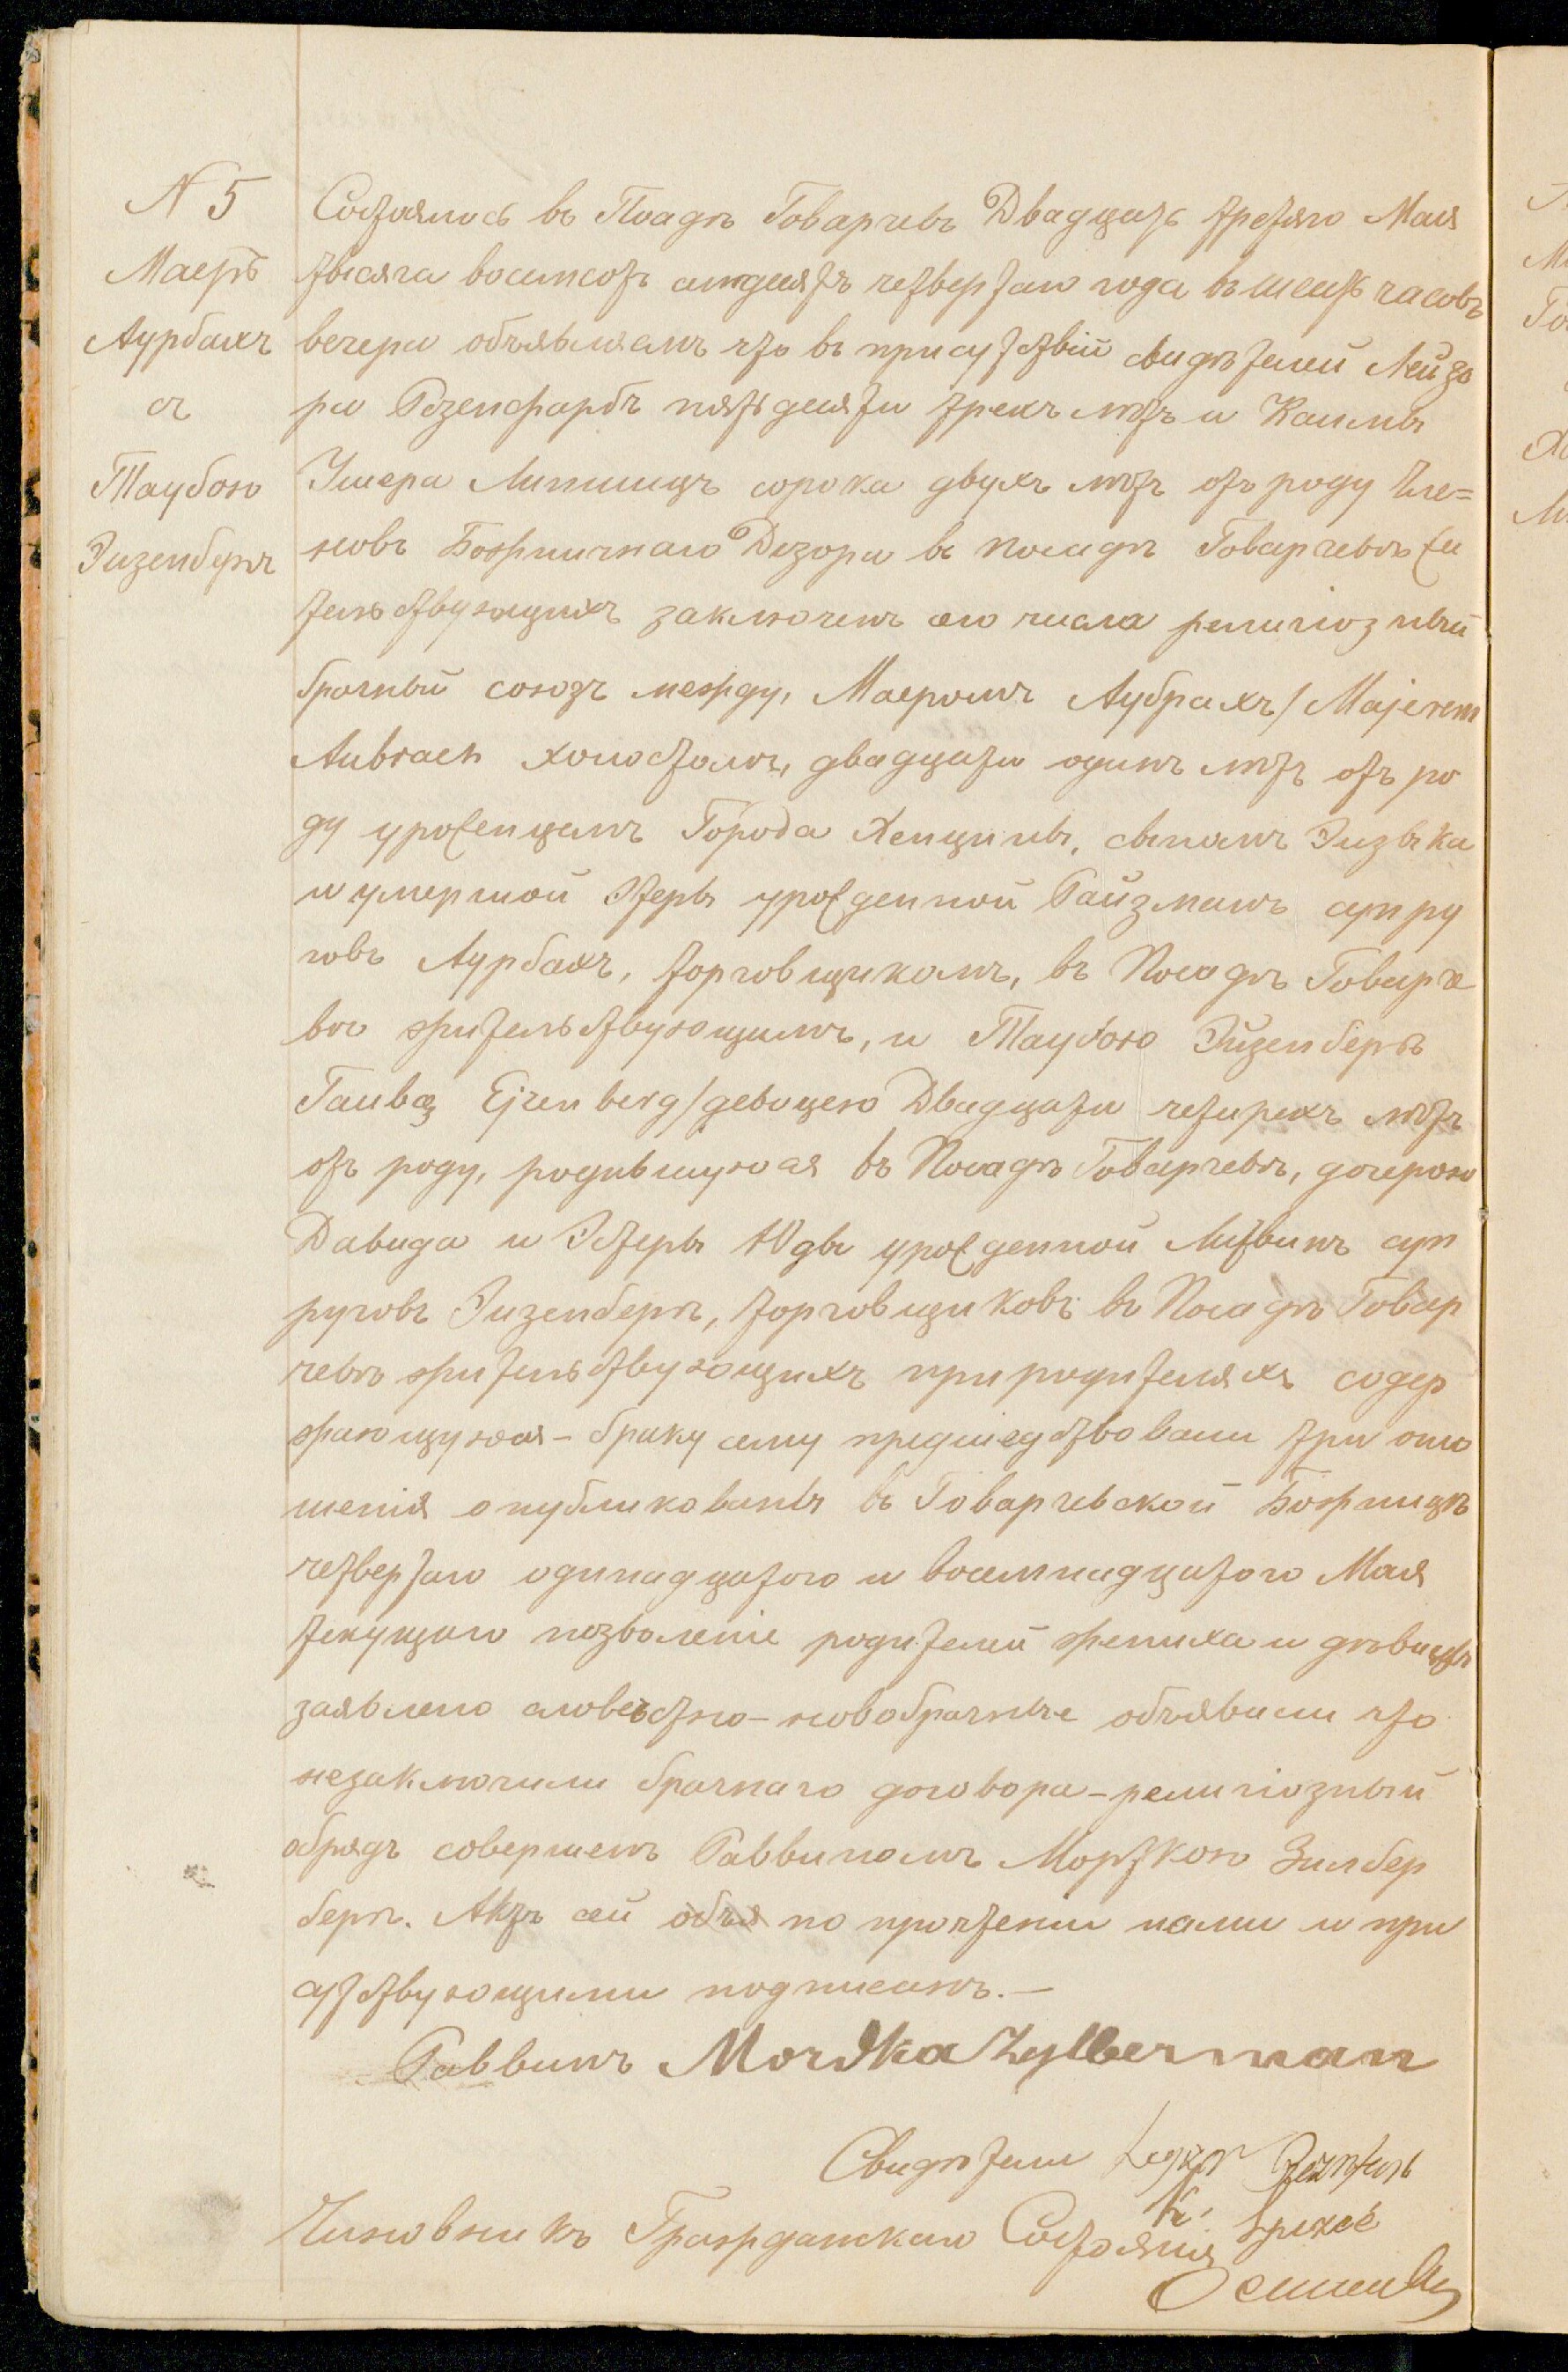 N 5
Маеръ
Аурбахъ
съ
Таубою
Эизенбергъ
Состоялось въ Посадѣ Говарчевъ Двадцать третяго Мая
тысяча восемсотъ семдесятъ четвертаго года въ шесть часовъ
вечера объявляемъ что въ присутствіи свидѣтелей Лейзо
ра Розенфарбъ пятьдесяти трехъ лѣтъ и Каимы
Ушера Липшицъ сорока двухъ лѣтъ отъ роду Чле=
новъ Божничнаго Дозора въ посадѣ Говарчевѣ жи
тельствующихъ заключенъ сего числа религіозный
брачный союзъ между, Маеромъ Аубрахъ/Majerem
Aubrach холостымъ, двадцати одинъ лѣтъ отъ ро
ду уроженцемъ Города Хенцины, сыномъ Эизыка
и умершой Эстеры урожденной Райзманъ супру
говъ Аурбахъ, торговщикомъ, въ Посадѣ Говарче
вѣ жительствующимъ, и Таубою Эйзенбергъ
Taubą Ejzenberg/девицею Двадцати четырехъ лѣтъ
отъ роду, родившуюся въ Посадѣ Говарчевѣ, дочерою
Давида и Эстеры Юды урожденной Литвинъ суп
руговъ Эизенбергъ, торговщиковъ въ Посадѣ Говар
чевѣ жительствующихъ при родителяхъ содер
жающуюся – браку сему предшедствовали три огло
шенія опубликованы въ Говарчевской Божницѣ
четвертаго одинадцатого и восемнадцатого Мая
текущаго позволеніе родителей жениха и дѣвицы
заявлено словестно – новобрачные объявили что
незаключили брачнаго договора – религіозный
обрядъ совершенъ Раввиномъ Морткою Зилбер
бергъ. Актъ сей объя по прочтении нами и при
сутствующими подписанъ. –
Раввинъ Mordka Zylberman
Свидѣтели
К.
Чиновникъ Гражданскаго Состоянія